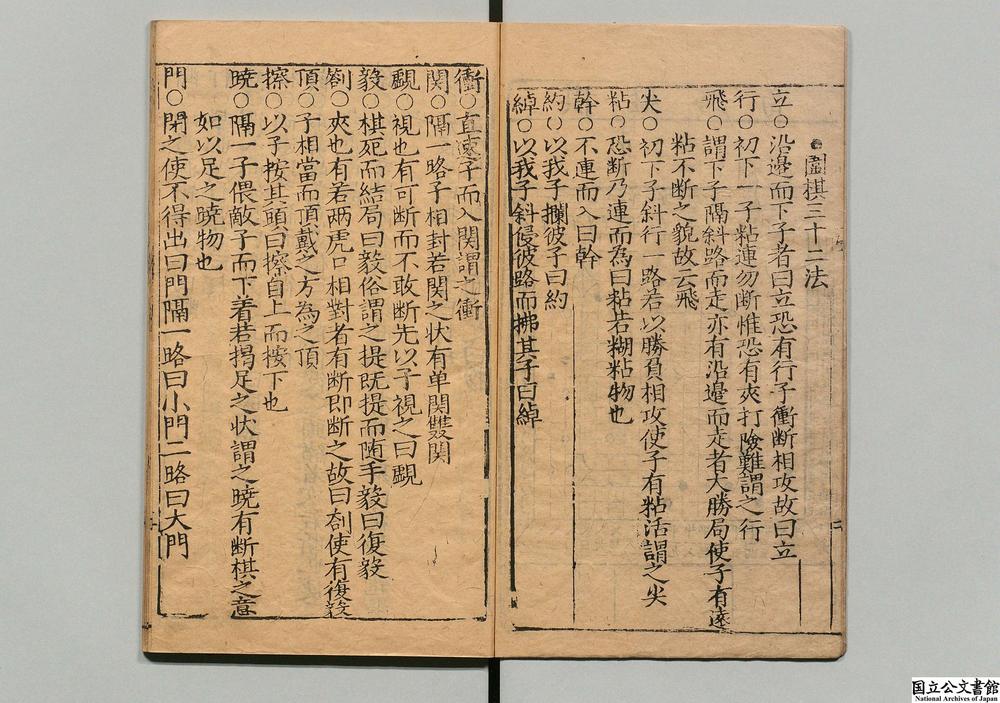 ●圍棋三十二法
立○沿邉而下子者曰立恐有行子衝断相攻故曰立
行○初下一子粘連勿断惟恐有夾打險難謂之行
飛○謂下子隔斜路而走亦有沿邉而走者大勝局使子有遠
粘不断之貌故云飛
尖○初下子斜行一路若以勝負相攻使子有粘活謂之尖
粘○恐断乃連而為曰粘若糊粘物也
幹○不連而入曰幹
約○以我子攔彼子曰約
綽○以我子斜侵彼路而拂其子曰綽
衝○直速子而入関謂之衝
関○隔一路子相封若関之状有单関雙関
覷○視也有可断而不敢断先以子視之曰覷
毅○棋死而結局曰毅俗謂之提既提而随手毅曰復毅
劄○夾也有若兩虎口相對者有断即断之故曰劄使有復毅
頂○子相當而頂戴之方為之頂
擦○以子按其頭曰擦自上而按下也
曉○隔一子偎敵子而下着若搨足之状謂之曉有断棋之意
如以足之曉物也
門○閉之使不得出曰門隔一路曰小門二路曰大門
国立公文書館
National Archives of Japan